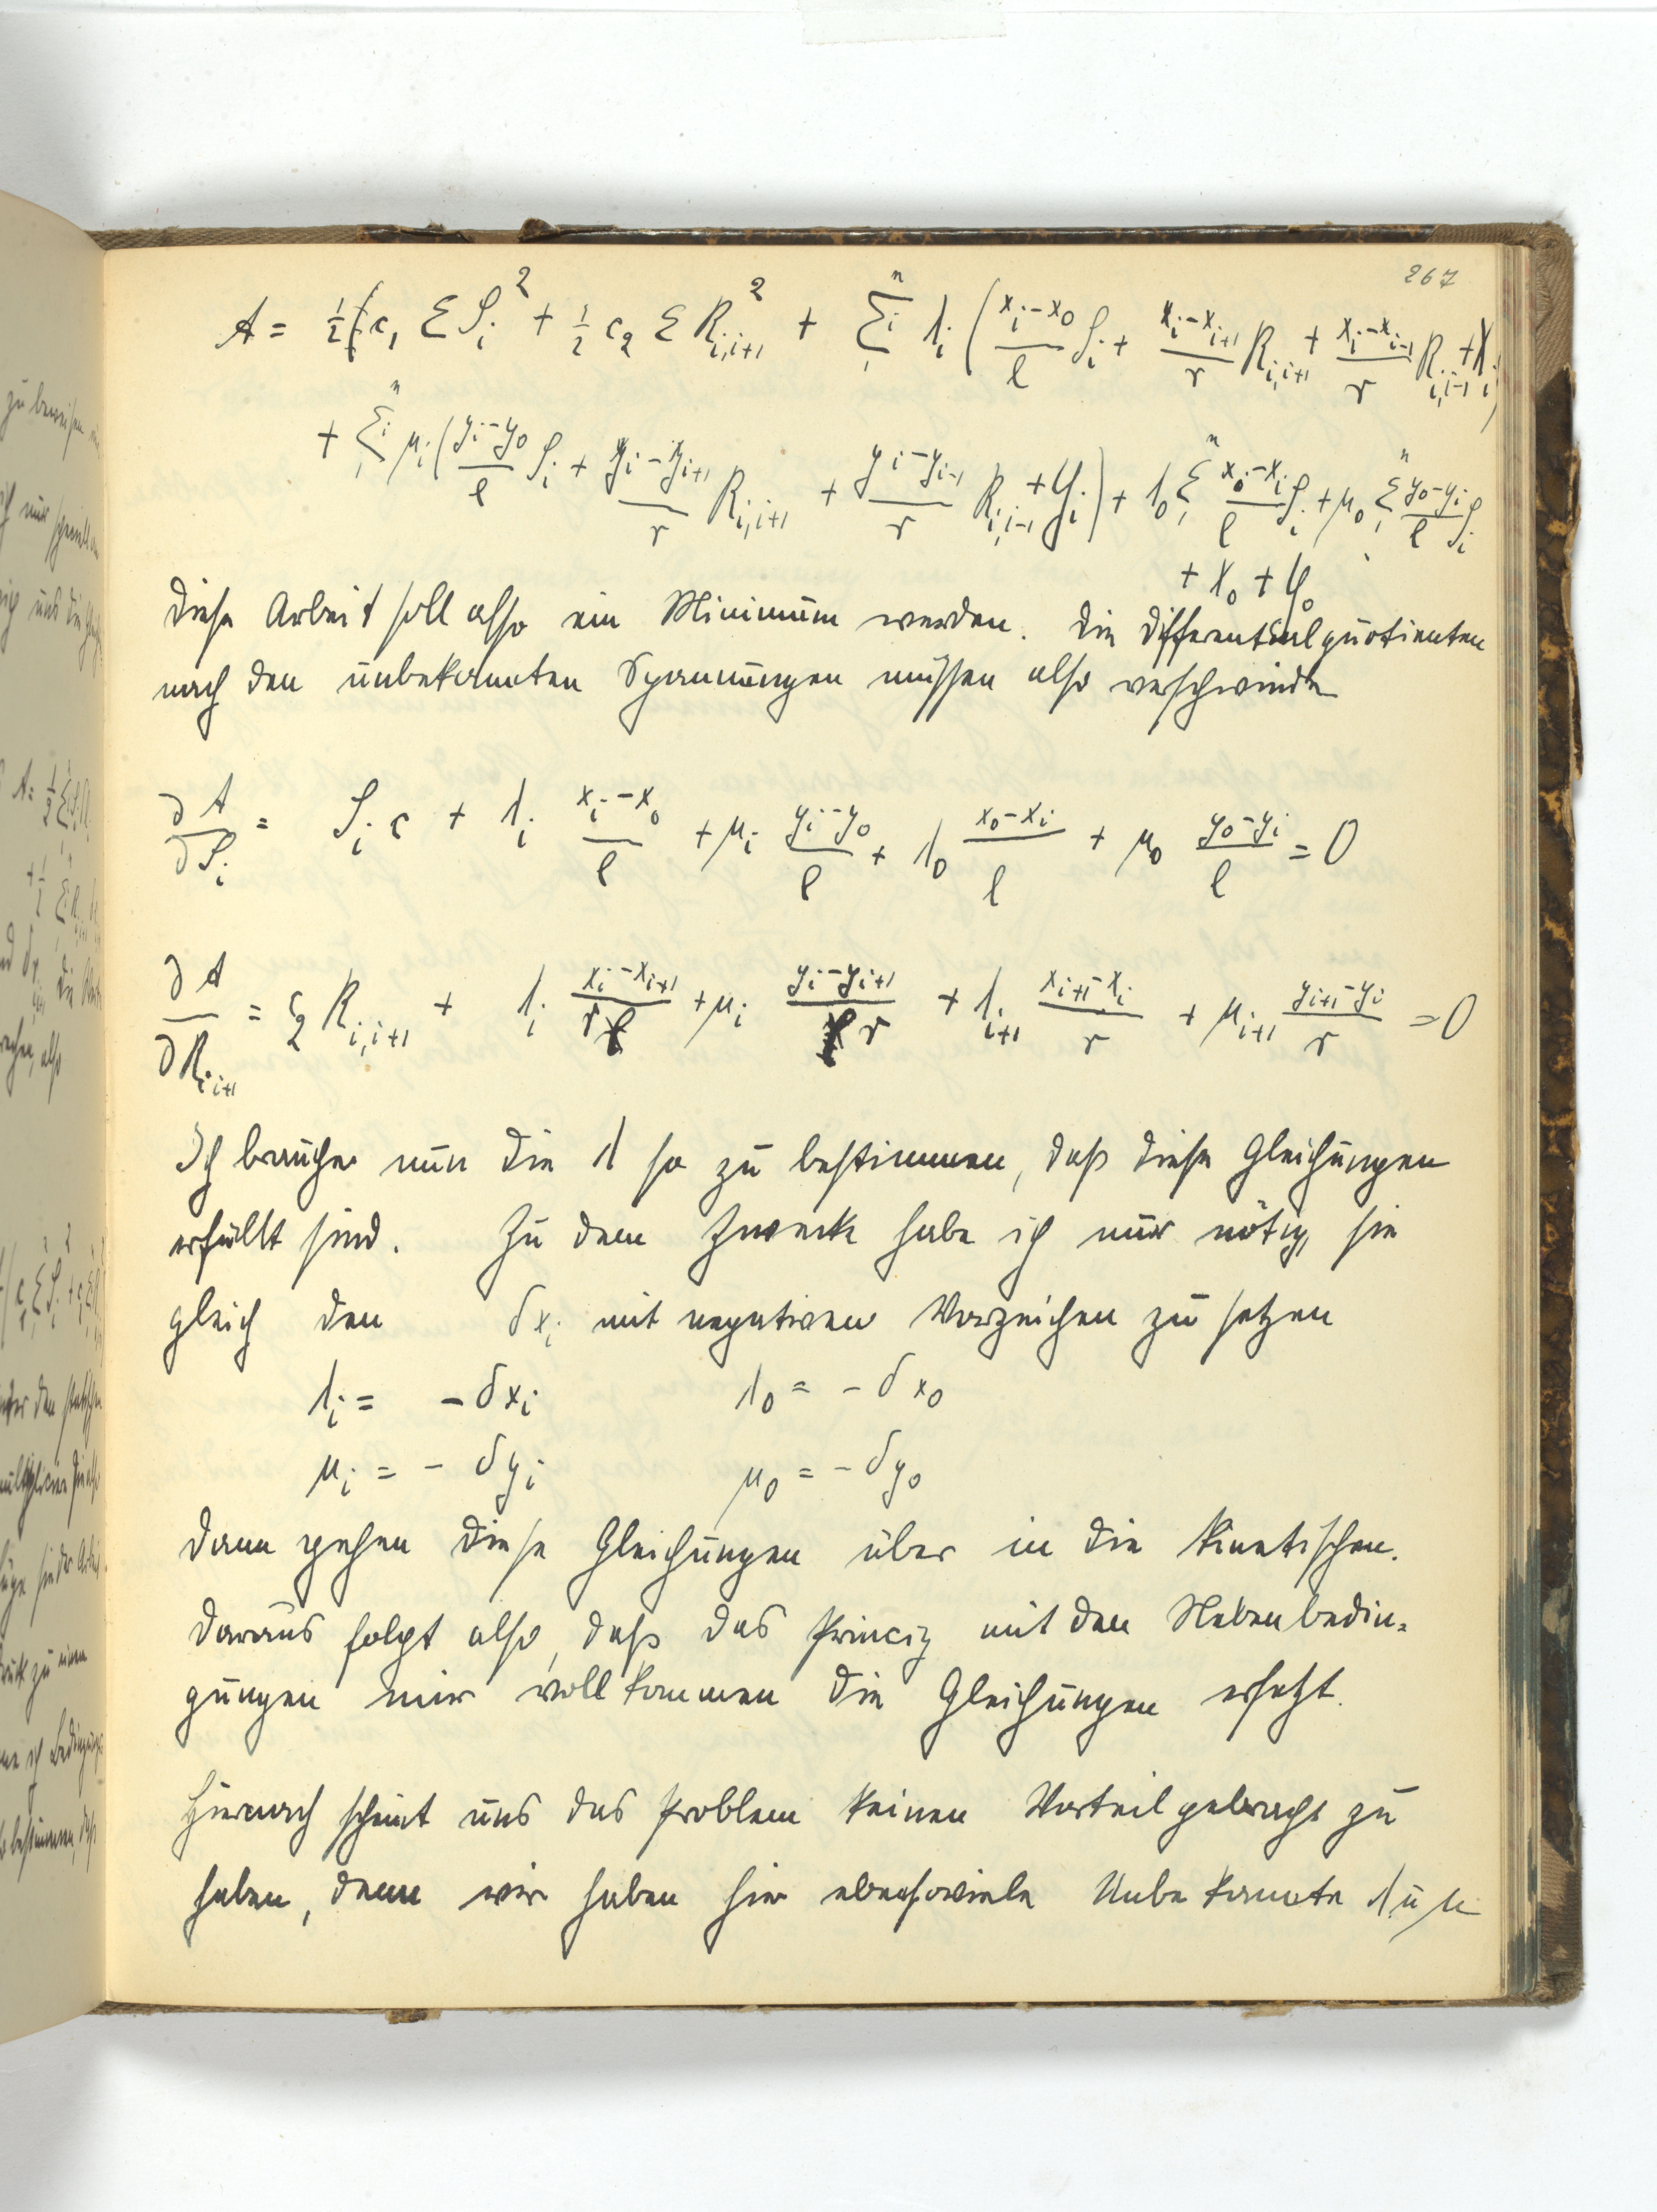 267
A = ½(c₁ Σ S_i² + ½ c₂ Σ R_{i,i+1}² + Σ_i^n λ_i ( (x_i-x_0)/l S_i + (x_i-x_{i+1})/r R_{i,i+1} + (x_i-x_{i-1})/r R_{i,i-1} + X_i )
+ Σ_i^n μ_i ( (y_i-y_0)/l S_i + (y_i-y_{i+1})/r R_{i,i+1} + (y_i-y_{i-1})/r R_{i,i-1} + Y_i ) + λ_0 Σ_1^n (x_0-x_i)/l S_i + μ_0 Σ_1^n (y_0-y_i)/l S_i
+ X_0 + Y_0
Diese Arbeit soll also ein Minimum werden. Die Differentialquotienten
nach den unbekannten Spannungen müssen also verschwinden
∂A/∂S_i = S_i c + λ_i (x_i-x_0)/l + μ_i (y_i-y_0)/l + λ_0 (x_0-x_i)/l + μ_0 (y_0-y_i)/l = 0
∂A/∂R_{i,i+1} = c_2 R_{i,i+1} + λ_i (x_i-x_{i+1})/r + μ_i (y_i-y_{i+1})/r + λ_{i+1} (x_{i+1}-x_i)/r + μ_{i+1} (y_{i+1}-y_i)/r = 0
Ich brauche nun die λ so zu bestimmen, daß diese Gleichungen
erfüllt sind. Zu dem Zwecke habe ich nur nötig, sie
gleich den δx_i mit negativen Vorzeichen zu setzen
λ_i = - δx_i λ_0 = - δx_0
μ_i = - δy_i μ_0 = - δy_0
Dann gehen diese Gleichungen über in die kinetischen.
Daraus folgt also, daß das Princip mit den Nebenbedin=
gungen mir vollkommen die Gleichungen ersetzt.
Hiernach scheint uns das Problem keinen Vorteil gebracht zu
haben, denn wir haben hier ebensoviele Unbekannte λ u μ